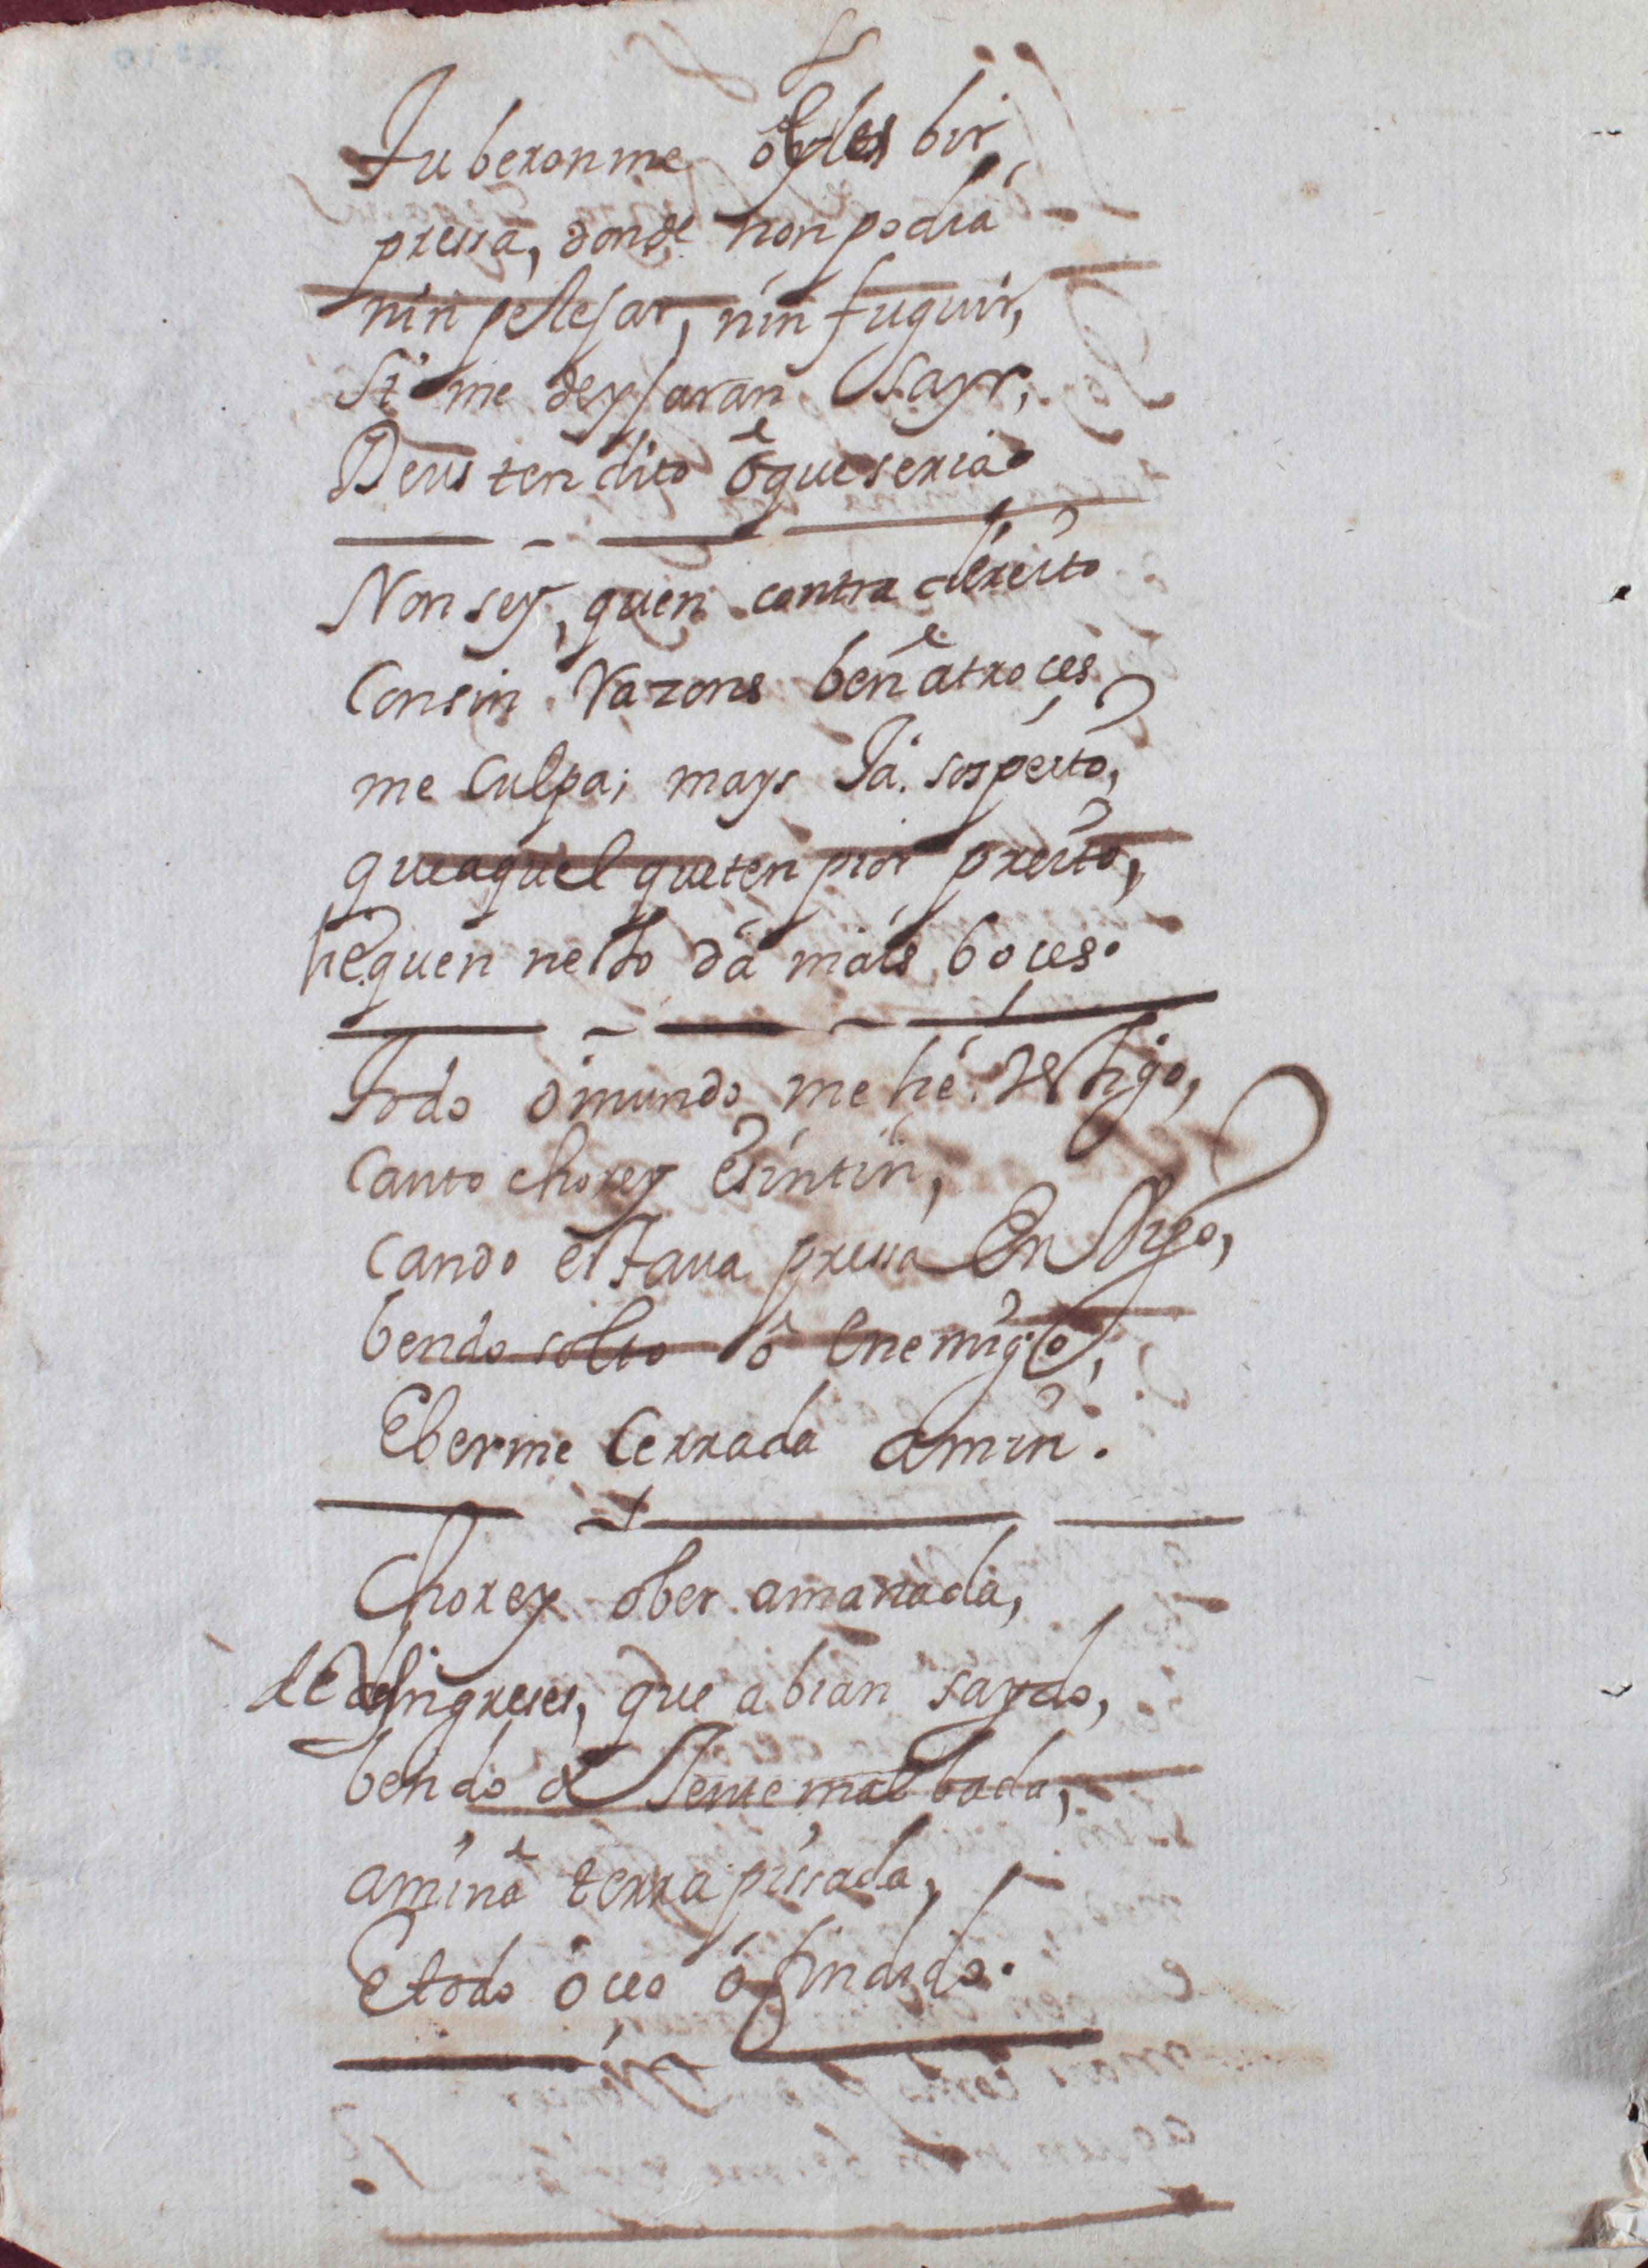 Tuberonme õ bir
pressa, donde non podia
nin pelejar, nin fuguir,
Si me deysaran sayr,
Deus ten dito õ que seria.
Non sey, quen contra dereito
Consin razons ben atroces
me culpa; mays Ja sospeito,
que aquel que ten pior preito,
he quen nesto dá mais boces.
Todo ó mundo me hé testigo,
canto chorey e sintin,
cando estaua pressa En Bigo,
bendo solto ó Enemigo,
E berme Cerrada a min.
Chorey ó ber amanada,
de Ingreses, que abian saydo,
bendo de Jente malbada,
a miña terra pissada,
E todo ó ceo ófindido.